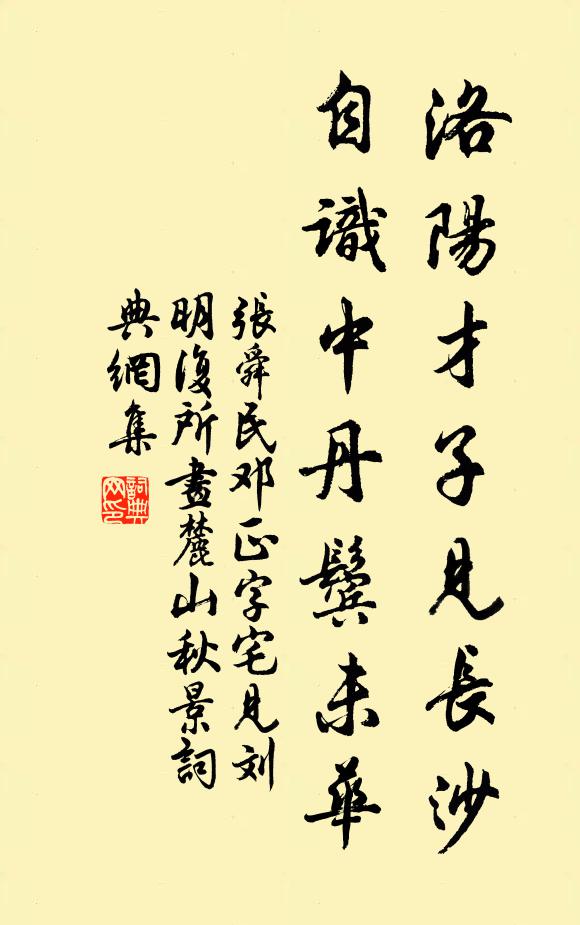 洛陽才子見長沙
自識中丹鬢未華
張舜民邓正字宅見刘
明復所畫麓山秋景詞
典網集
詞典
网印